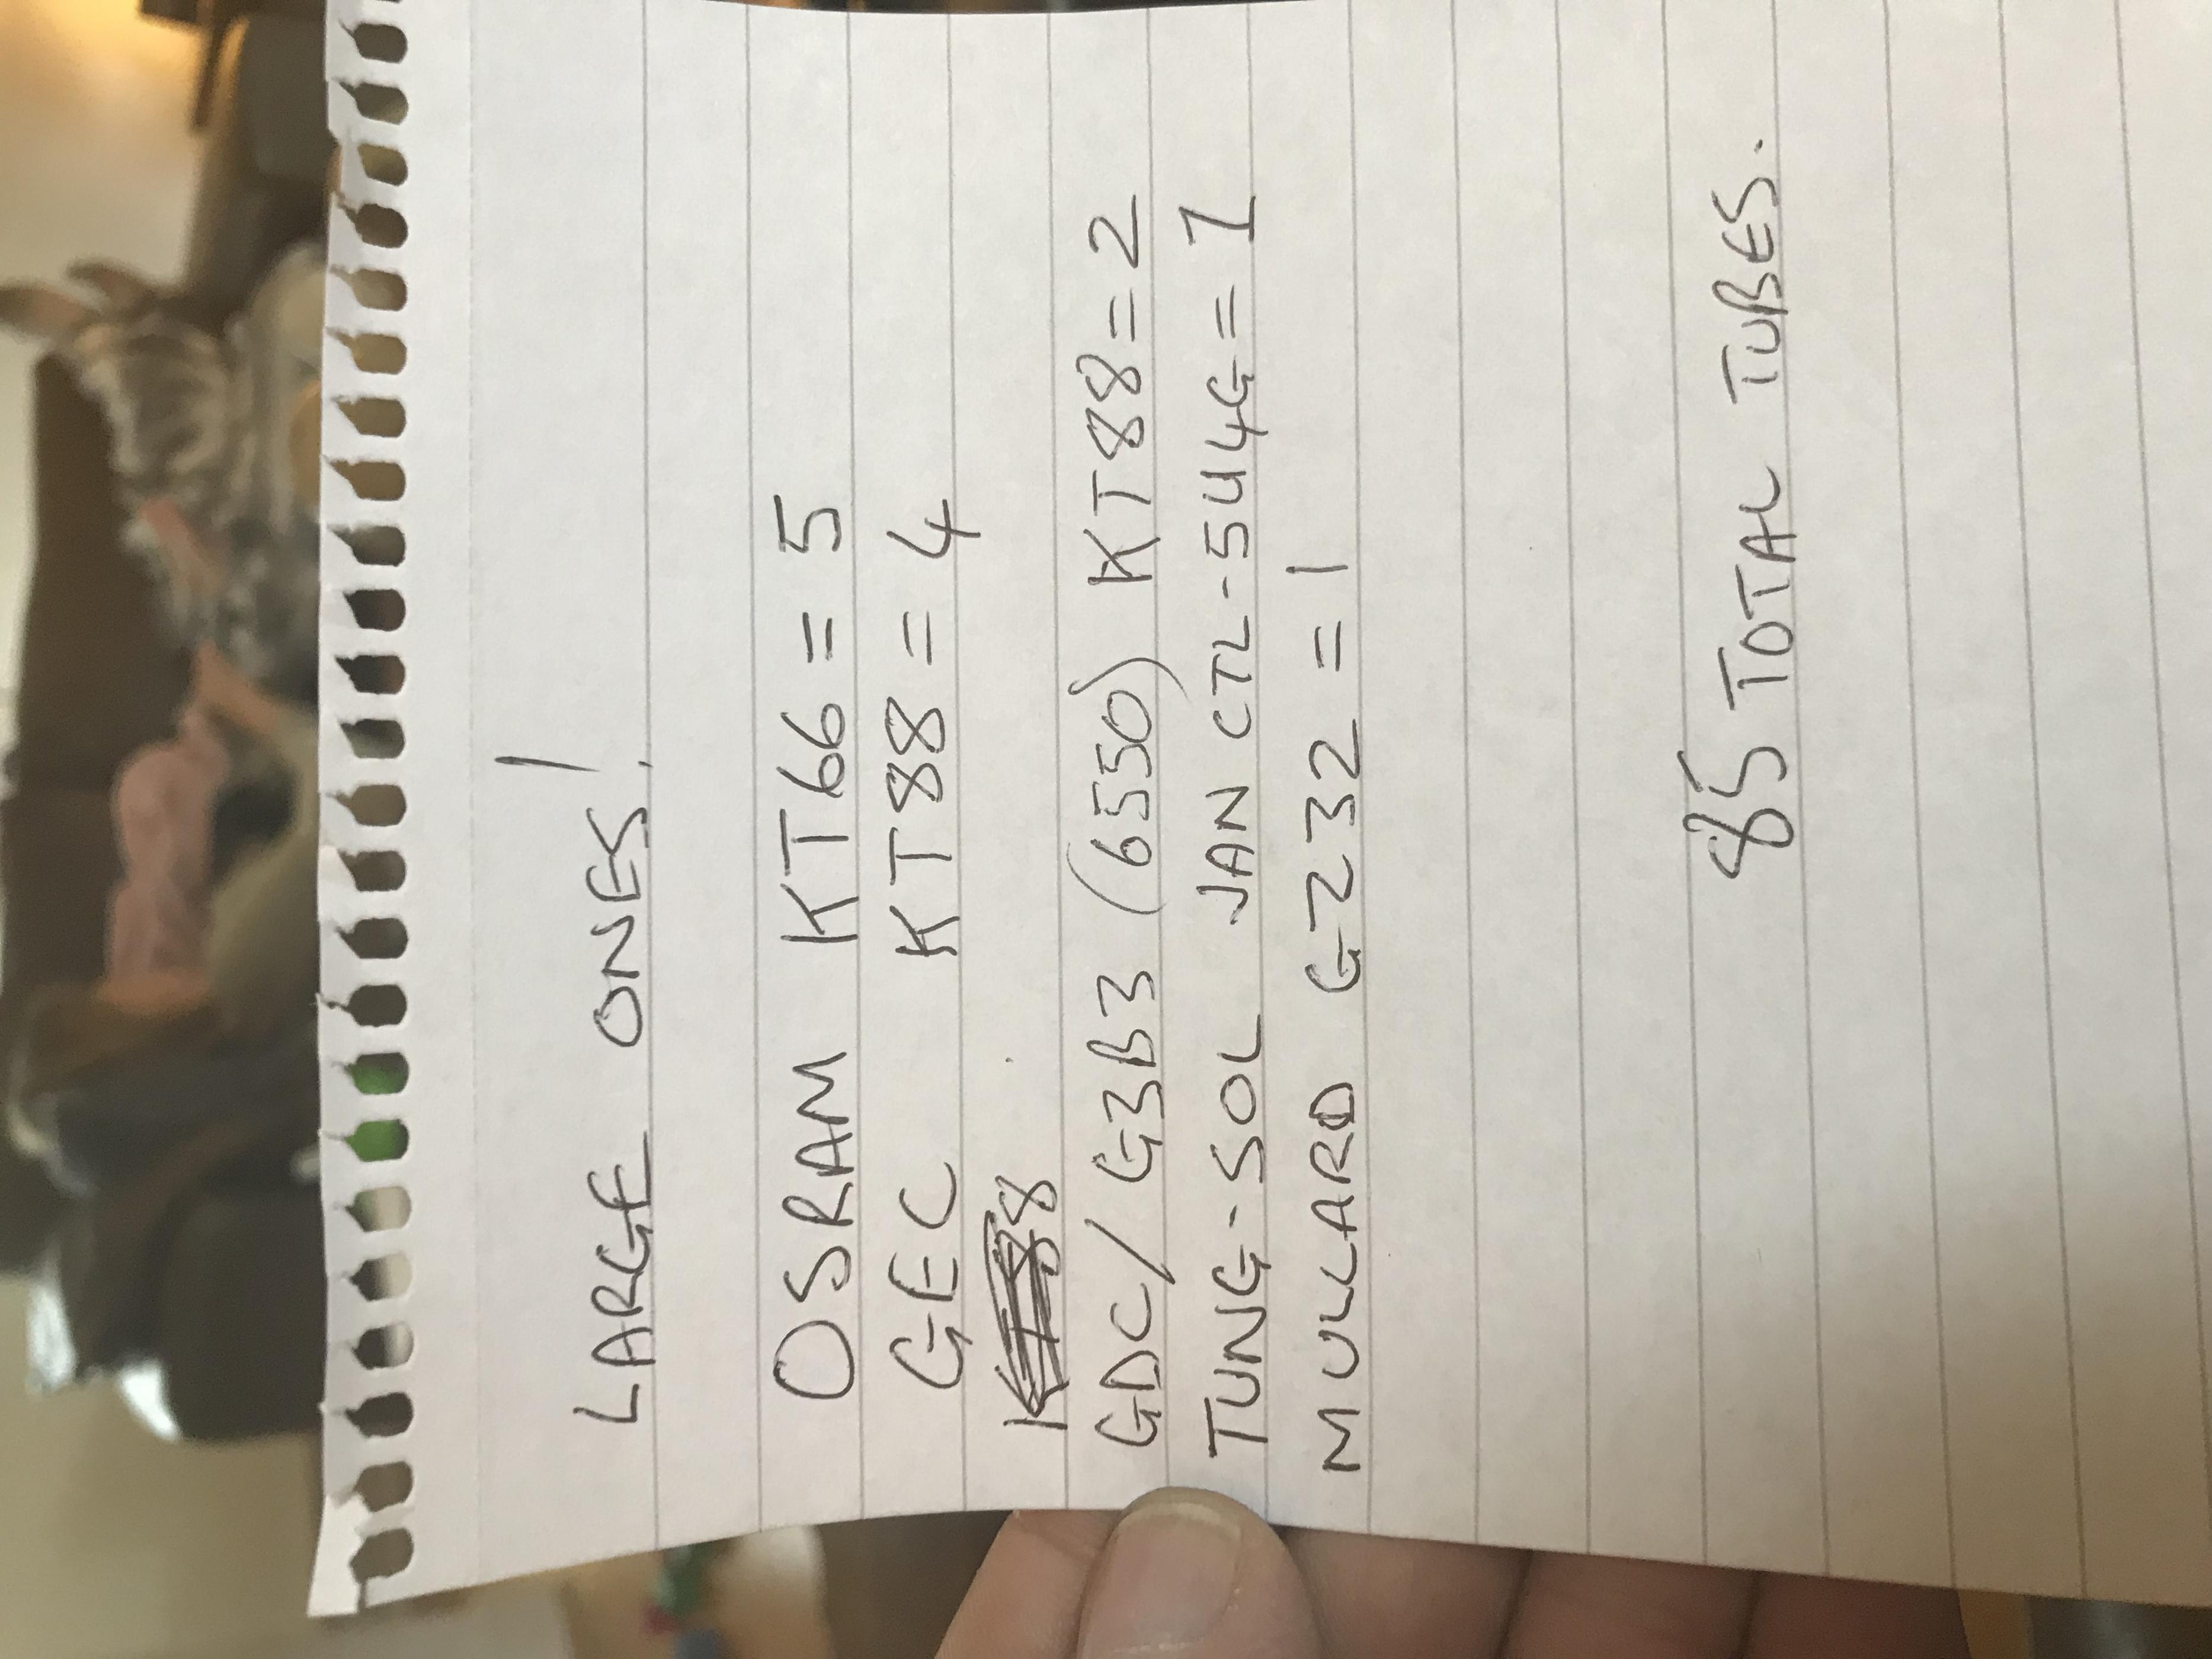 LARGE ONES!
OSRAM KT66 = 5
GEC KT88 = 4
GDC/ G3B3 (6550) KT88 = 2
TUNG-SOL JAN CTL-5U4G = 1
MULLARD GZ32 = 1
85 TOTAL TUBES.